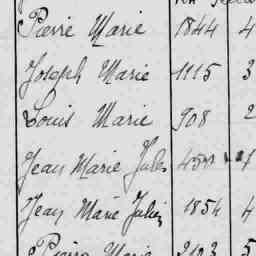 Pierre Marie 1844 4
Joseph Marie 1115 3
Louis Marie 908 2
Jean Marie Jules
Jean Marie Julien 1854 4
Pierre Marie 2103 5